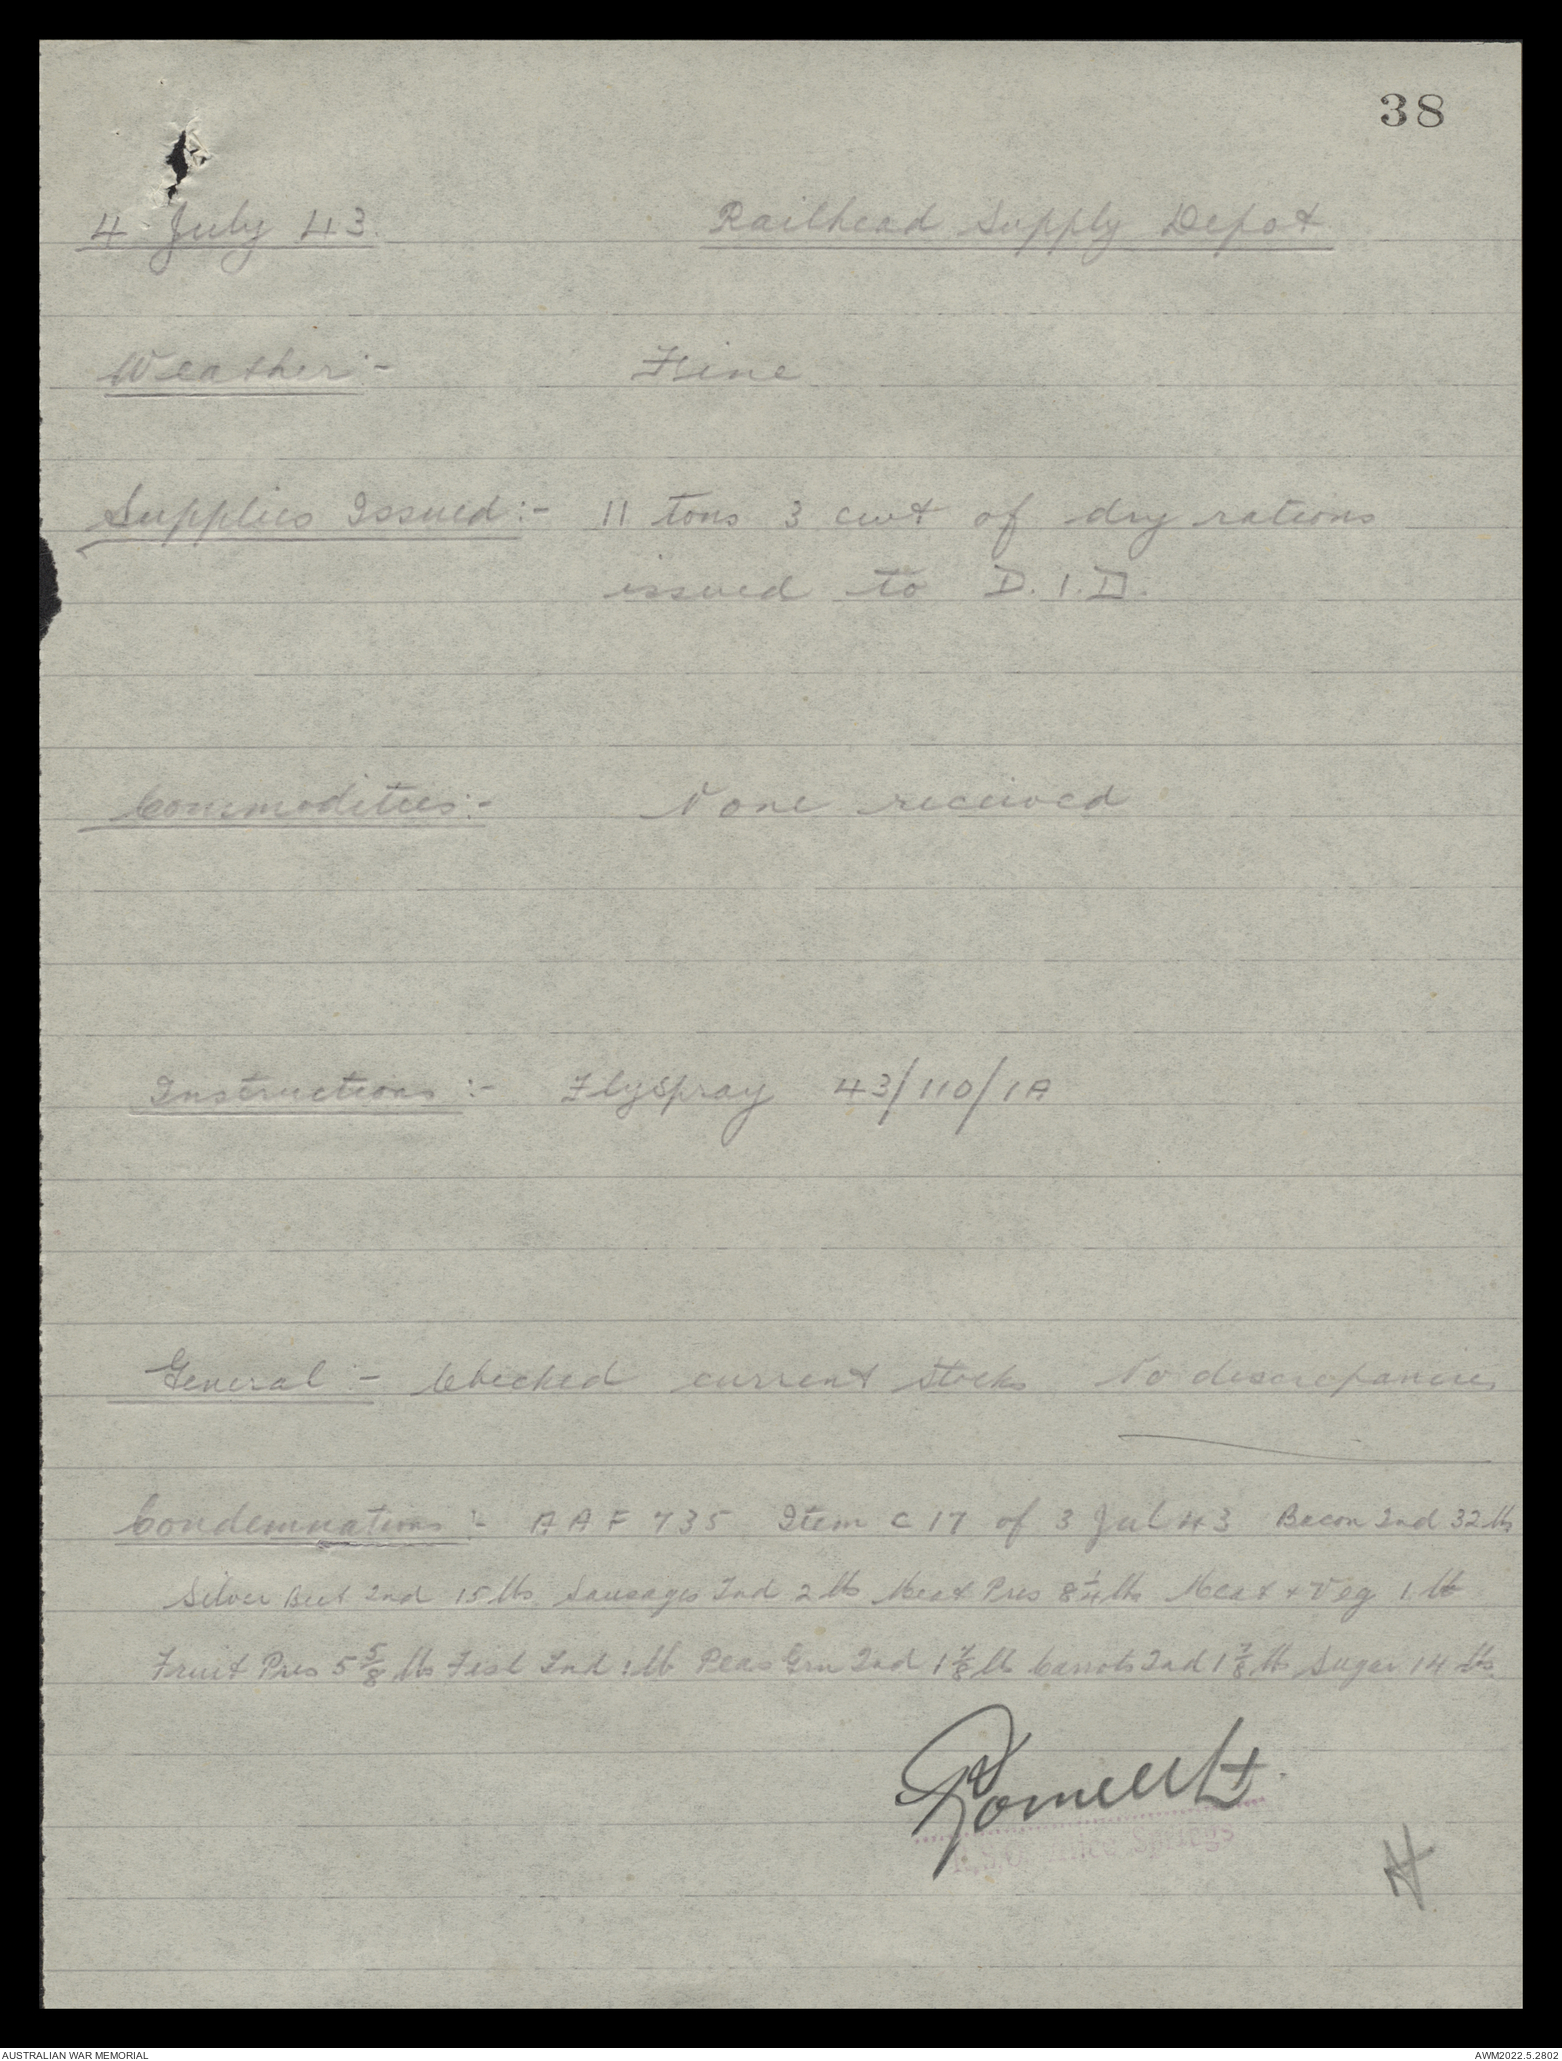 38
4 July 43. Railhead Supply Depot
Weather:- Fine
Supplies Issued:- 11 tons 3 cwt of dry rations
issued to D.I.D.
Commodities:- None received
Instructions:- Flyspray 43/110/1A
General:- Checked current stocks No discrepancies
Condemnations:- AAF 735 Item C17 of 3 Jul 43 Bacon 2nd 32 lbs
Silver Beet 2nd 15 lbs Sausages Tnd 2 lbs Meat Pres 8 1/4 lbs Meat + Veg 1 lb
Fruit Pres 5 5/8 lbs Fish Tnd 1 lb Peas Grn 2nd 1 7/8 lb Carrots 2nd 1 7/8 lb Sugar 14 lbs
Alice Springs
AUSTRALIAN WAR MEMORIAL AWM2022.5.2802